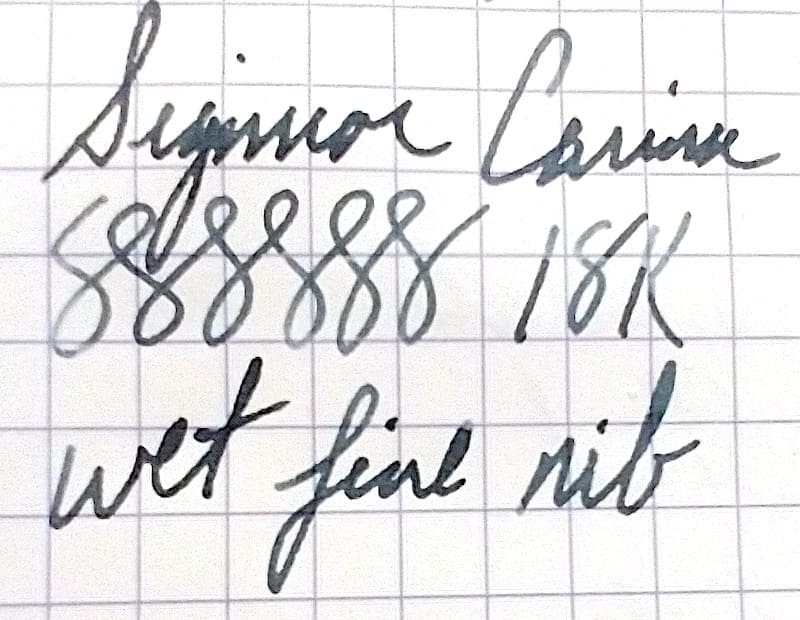 Carina
888888 18K
wet fine nib